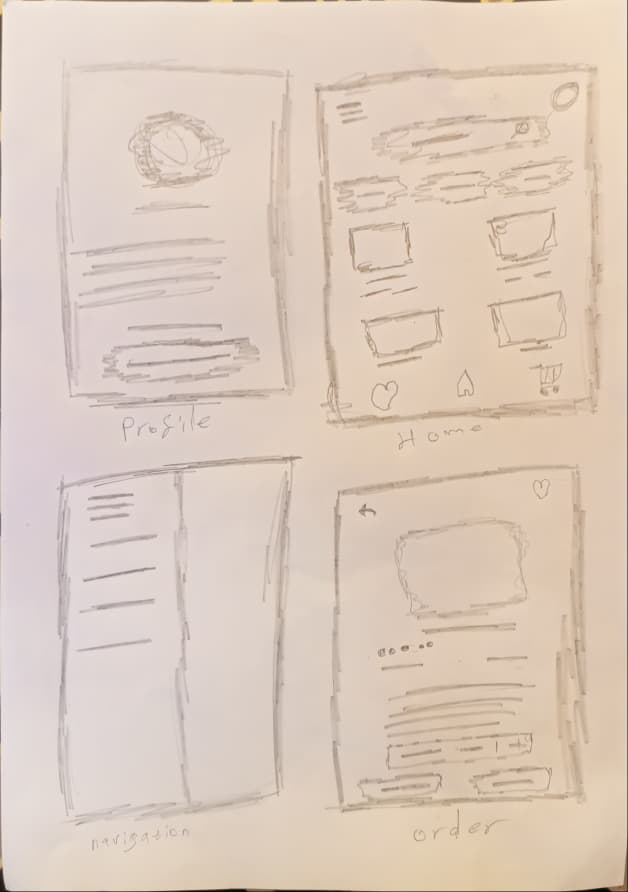 Profile
Home
navigation
order